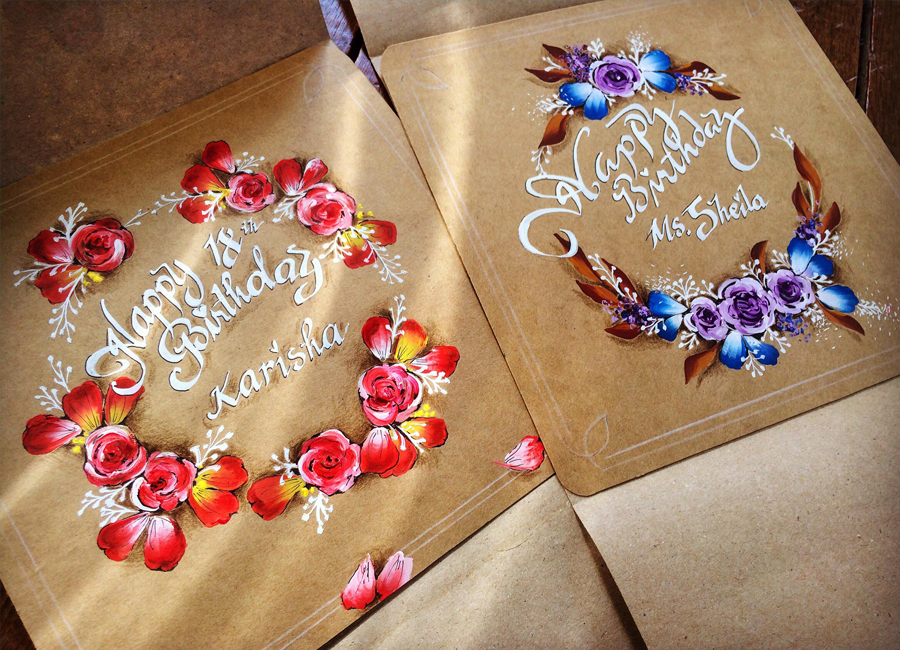 Happy 18th
Birthday
Karisha
Happy
Birthday
Ms. Sheila